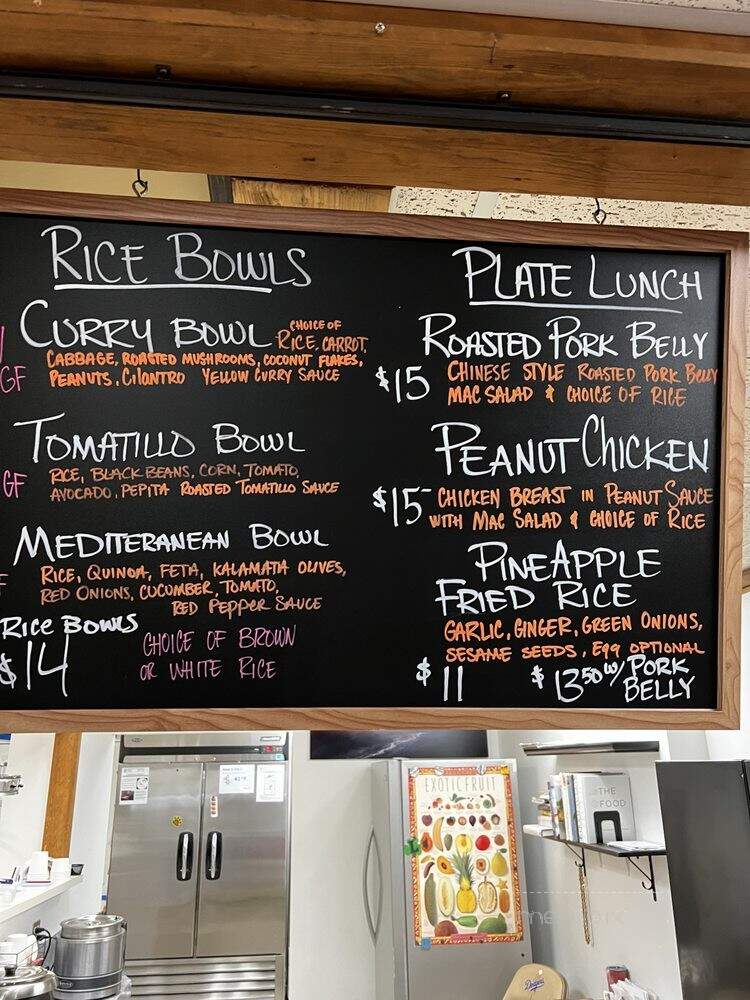 RICE BOWLS
CURRY BOWL CHOICE OF
RICE, CARROT,
CABBAGE, ROASTED MUSHROOMS, COCONUT FLAKES,
GF PEANUTS, CILANTRO YELLOW CURRY SAUCE
TOMATILLO BOWL
GF RICE, BLACK BEANS, CORN, TOMATO,
AVOCADO, PEPITA ROASTED TOMATILLO SAUCE
MEDITERANEAN BOWL
RICE, QUINOA, FETA, KALAMATA OLIVES,
RED ONIONS, CUCUMBER, TOMATO,
RED PEPPER SAUCE
RICE BOWLS
$14
CHOICE OF BROWN
OR WHITE RICE
PLATE LUNCH
ROASTED PORK BELLY
$15 CHINESE STYLE ROASTED PORK BELLY
MAC SALAD & CHOICE OF RICE
PEANUT CHICKEN
$15- CHICKEN BREAST IN PEANUT SAUCE
WITH MAC SALAD & CHOICE OF RICE
PINEAPPLE
FRIED RICE
GARLIC, GINGER, GREEN ONIONS,
SESAME SEEDS, Egg OPTIONAL
$11 $13.50 w/ PORK
BELLY
EXOTIC FRUIT
THE
FOOD
Dodgers